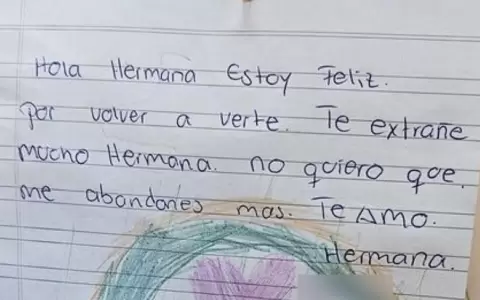 Hola Hermana Estoy Feliz.
por volver a verte. Te extrañe
mucho Hermana. no quiero que.
me abandones mas. Te AMO.
Hermana.